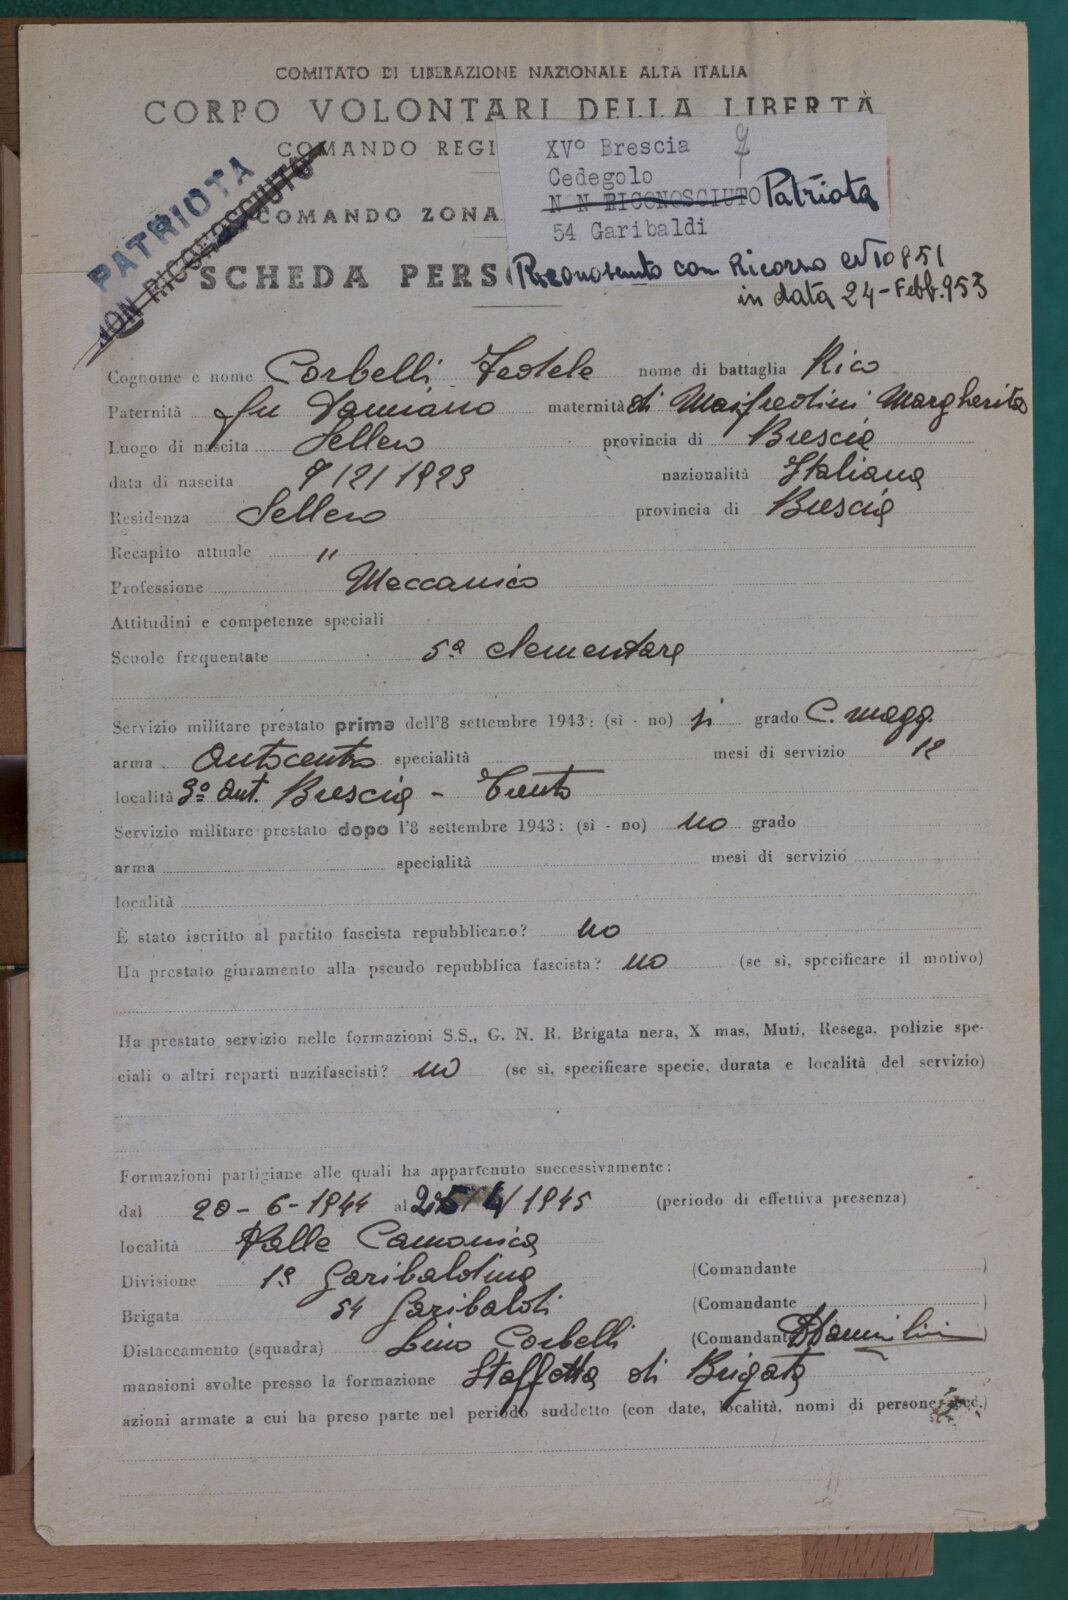 COMITATO DI LIBERAZIONE NAZIONALE ALTA ITALIA
CORPO VOLONTARI DELLA LIBERTÀ
COMANDO REGI
COMANDO ZONA
SCHEDA PERS
PATRIOTA
NON RICONOSCIUTO
XVº Brescia 9
Cedegolo
N N RICONOSCIUTO Patriota
54 Garibaldi
Riconosciuto con Ricorso
in data 24-Febb.953
Cognome e nome Corbelli Fedele nome di battaglia Rico
Paternità fu Damiano maternità di Manfredini Margherita
Luogo di nascita Sellero provincia di Brescia
data di nascita 9/2/1923 nazionalità Italiana
Residenza Sellero provincia di Brescia
Recapito attuale "
Professione Meccanico
Attitudini e competenze speciali
Scuole frequentate 5ª elementare
Servizio militare prestato prima dell'8 settembre 1943: (sì - no) si grado C. magg.
arma Autocentro specialità mesi di servizio 12
località 3º Aut. Brescia - Trento
Servizio militare prestato dopo l'8 settembre 1943: (sì - no) no grado
arma specialità mesi di servizio
località
È stato iscritto al partito fascista repubblicano? no
Ha prestato giuramento alla pseudo repubblica fascista? no (se sì, specificare il motivo)
Ha prestato servizio nelle formazioni S.S., G. N. R. Brigata nera, X mas, Muti, Resega, polizie spe-
ciali o altri reparti nazifascisti? no (se sì, specificare specie, durata e località del servizio)
Formazioni partigiane alle quali ha appartenuto successivamente:
dal 20-6-1944 al 25/4/1945 (periodo di effettiva presenza)
località Valle Camonica
Divisione 1ª Garibaldina (Comandante )
Brigata 54 Garibaldi (Comandante )
Distaccamento (squadra) Lino Corbelli (Comandante )
mansioni svolte presso la formazione Staffetta di Brigata
azioni armate a cui ha preso parte nel periodo suddetto (con date, località, nomi di persone, ecc.)